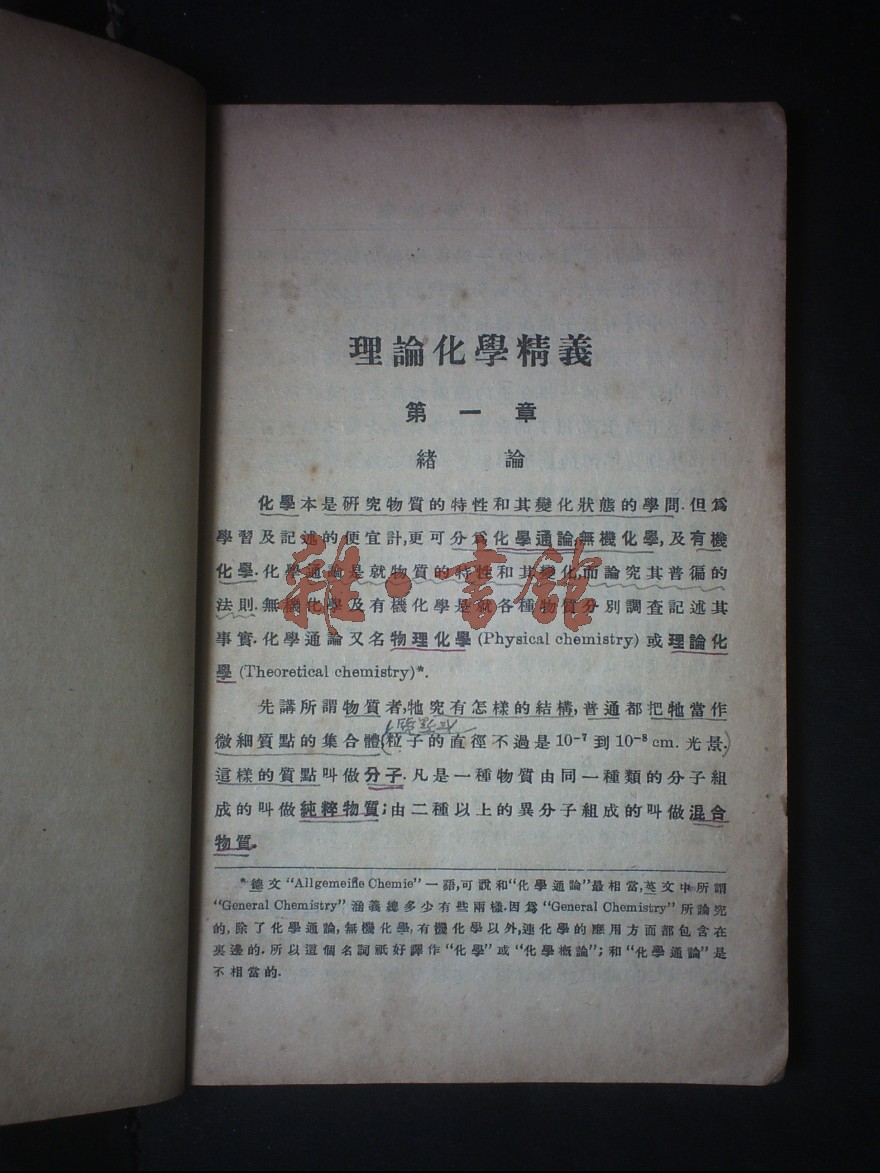 理論化學精義
第一章
緒論
化學本是研究物質的特性和其變化狀態的學問.但爲
學習及記述的便宜計,更可分爲化學通論,無機化學,及有機
化學.化學通論是就物質的特性和其變化,而論究其普徧的
法則.無機化學及有機化學是就各種物質分別調查記述其
事實.化學通論又名物理化學(Physical chemistry)或理論化
學(Theoretical chemistry)*.
先講所謂物質者,牠究有怎樣的結構,普通都把牠當作
微細質點的集合體(粒子的直徑不過是10⁻⁷到10⁻⁸cm.光景.)
這樣的質點叫做分子.凡是一種物質由同一種類的分子組
成的叫做純粹物質;由二種以上的異分子組成的叫做混合
物質.
*德文“Allgemeine Chemie”一語,可說和“化學通論”最相當,英文中所謂
“General Chemistry”涵義總多少有些兩樣.因爲“General Chemistry”所論究
的,除了化學通論,無機化學,有機化學以外,連化學的應用方面都包含在
裏邊的.所以這個名詞祇好譯作“化學”或“化學概論”;和“化學通論”是
不相當的.
雜·書館